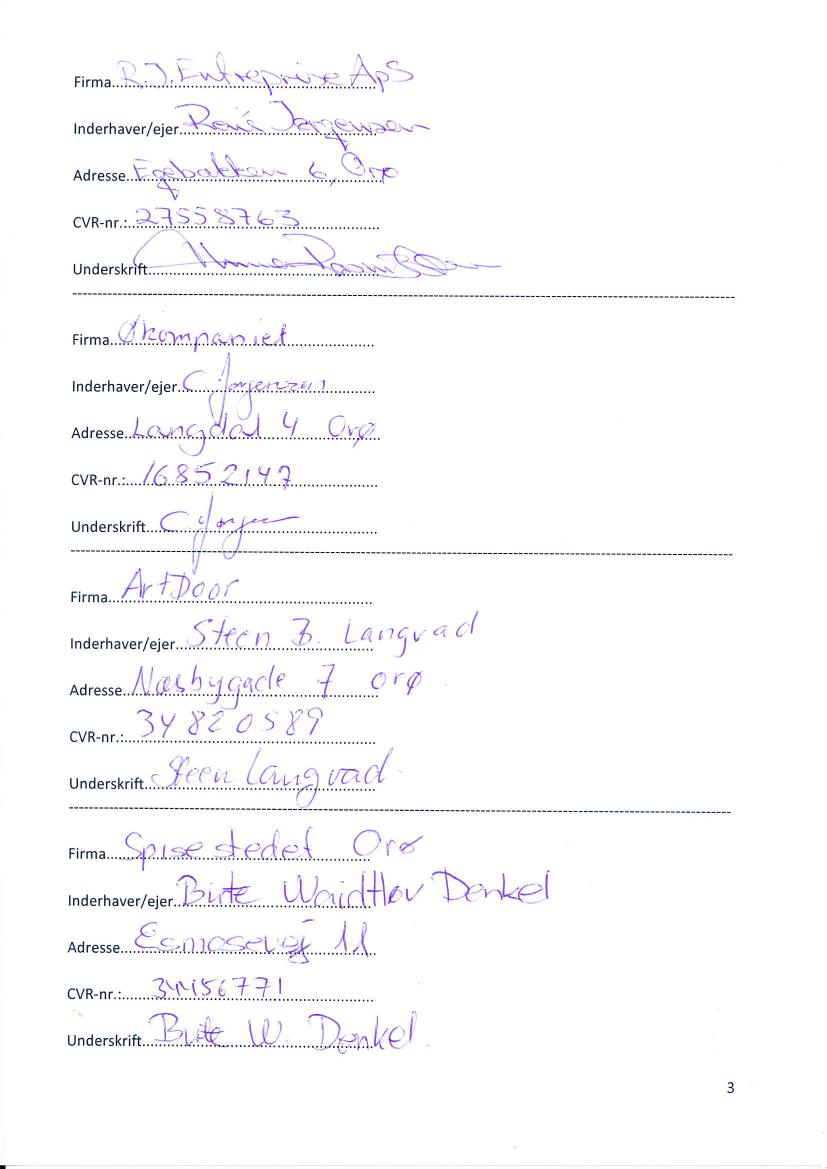 Firma R.J. Entreprise ApS
Inderhaver/ejer René Jørgensen
Adresse Egebakken 6, Orø
CVR-nr.: 27558763
Underskrift
Firma Økompaniet
Inderhaver/ejer C Jørgensen
Adresse Langdal 4 Orø
CVR-nr.: 16852147
Underskrift C Jørgen
Firma ArtDoor
Inderhaver/ejer Steen B. Langvad
Adresse Næsbygade 7 Orø
CVR-nr.: 34820589
Underskrift Steen Langvad
Firma Spisestedet Orø
Inderhaver/ejer Birte Waidtløv Denkel
Adresse Esmosevej 11
CVR-nr.: 34456771
Underskrift Birte W. Denkel
3